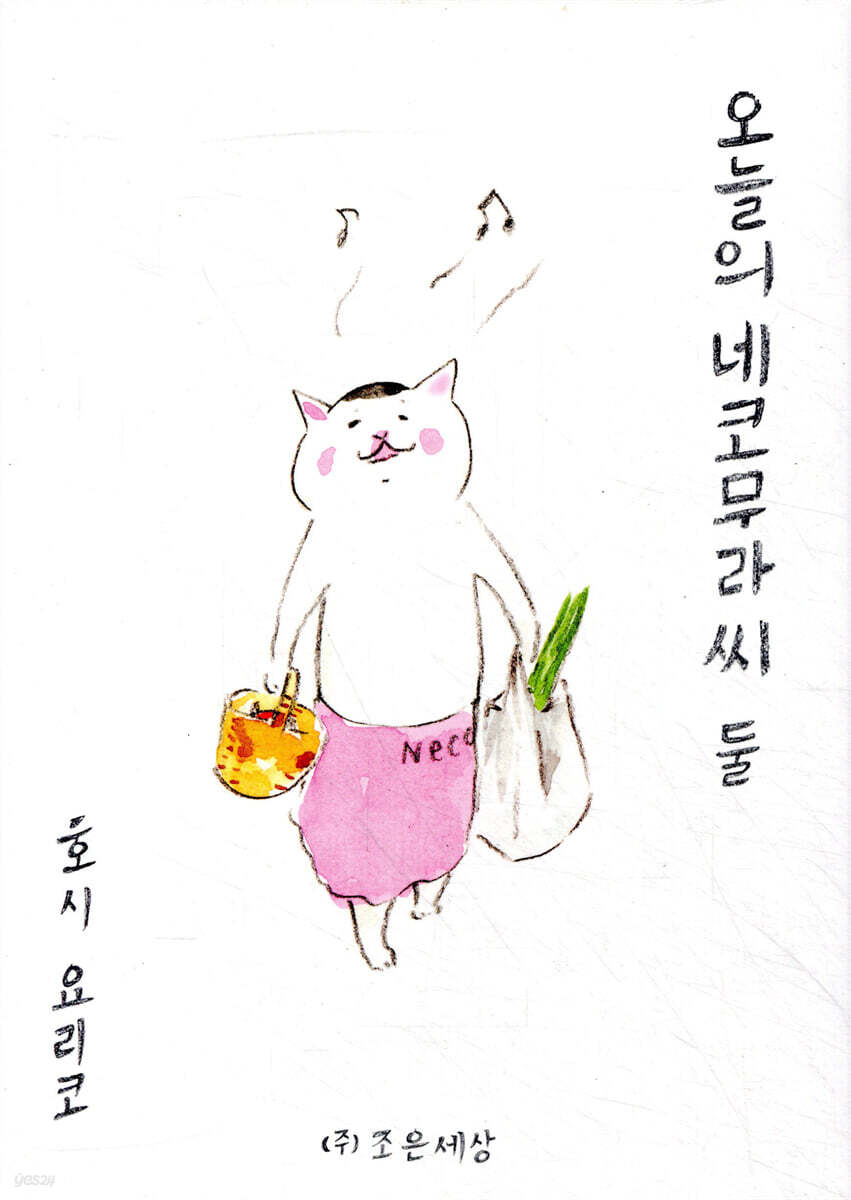 오늘의 네코무라씨 둘
Neco
호시 요리코
(주) 조은세상
yes24